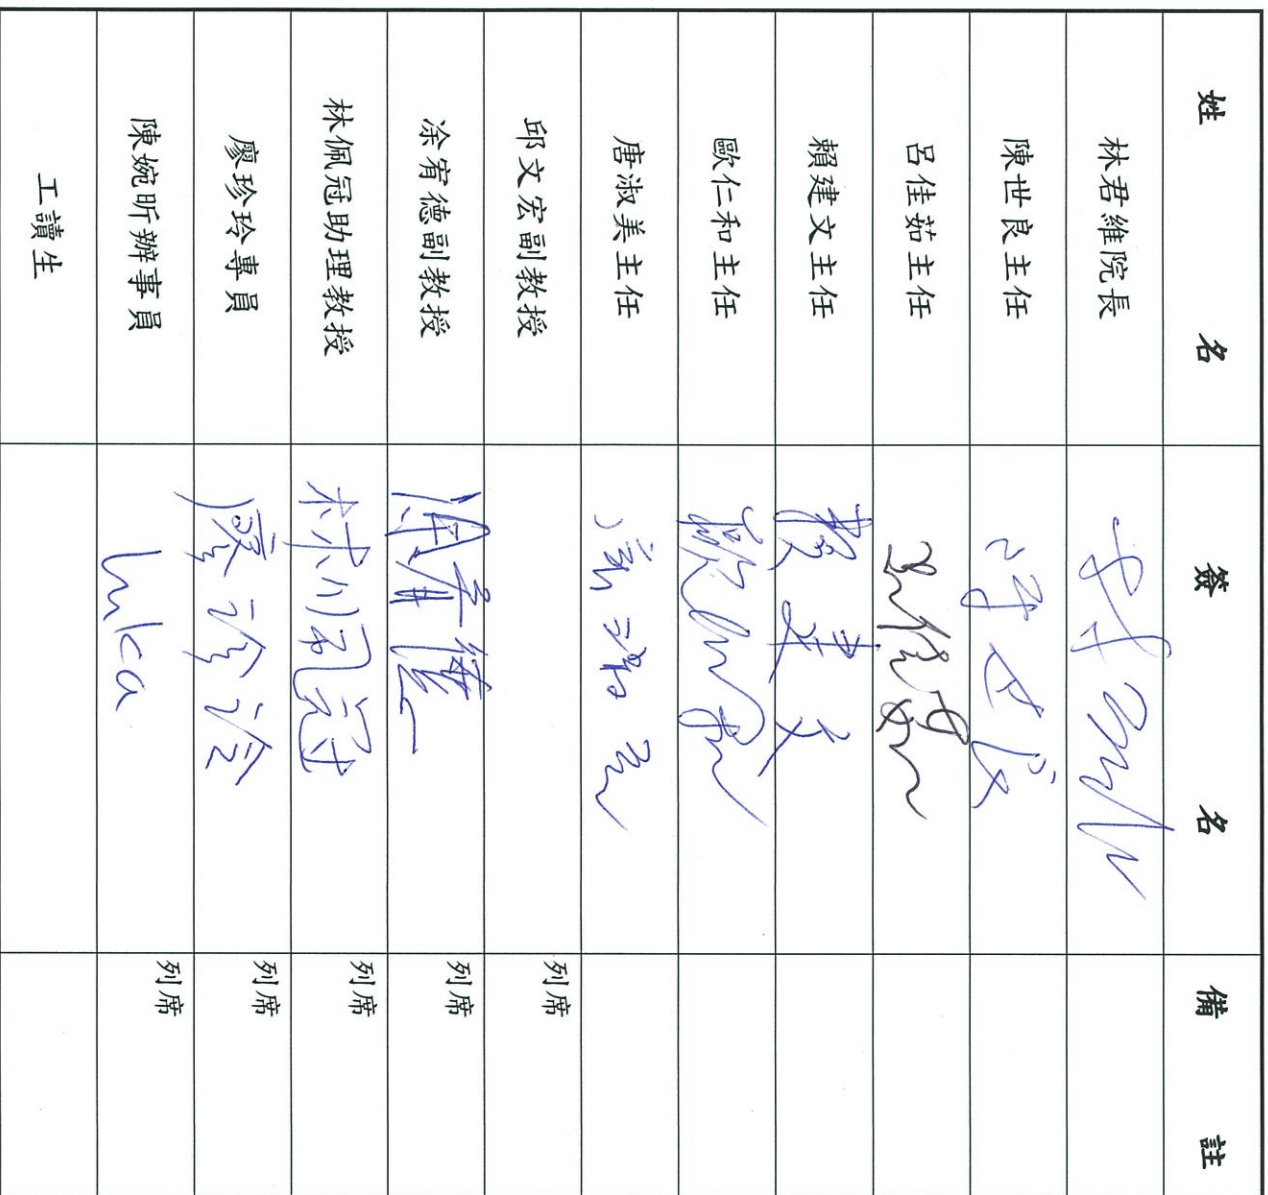 姓名 簽名 備註
林君維院長
陳世良主任
呂佳茹主任 呂佳茹
賴建文主任 賴建文
歐仁和主任 歐仁和
唐淑美主任 唐淑美
邱文宏副教授 列席
涂宥德副教授 涂宥德 列席
林佩冠助理教授 林佩冠 列席
廖珍玲專員 廖珍玲 列席
陳婉昕辦事員 luka 列席
工讀生